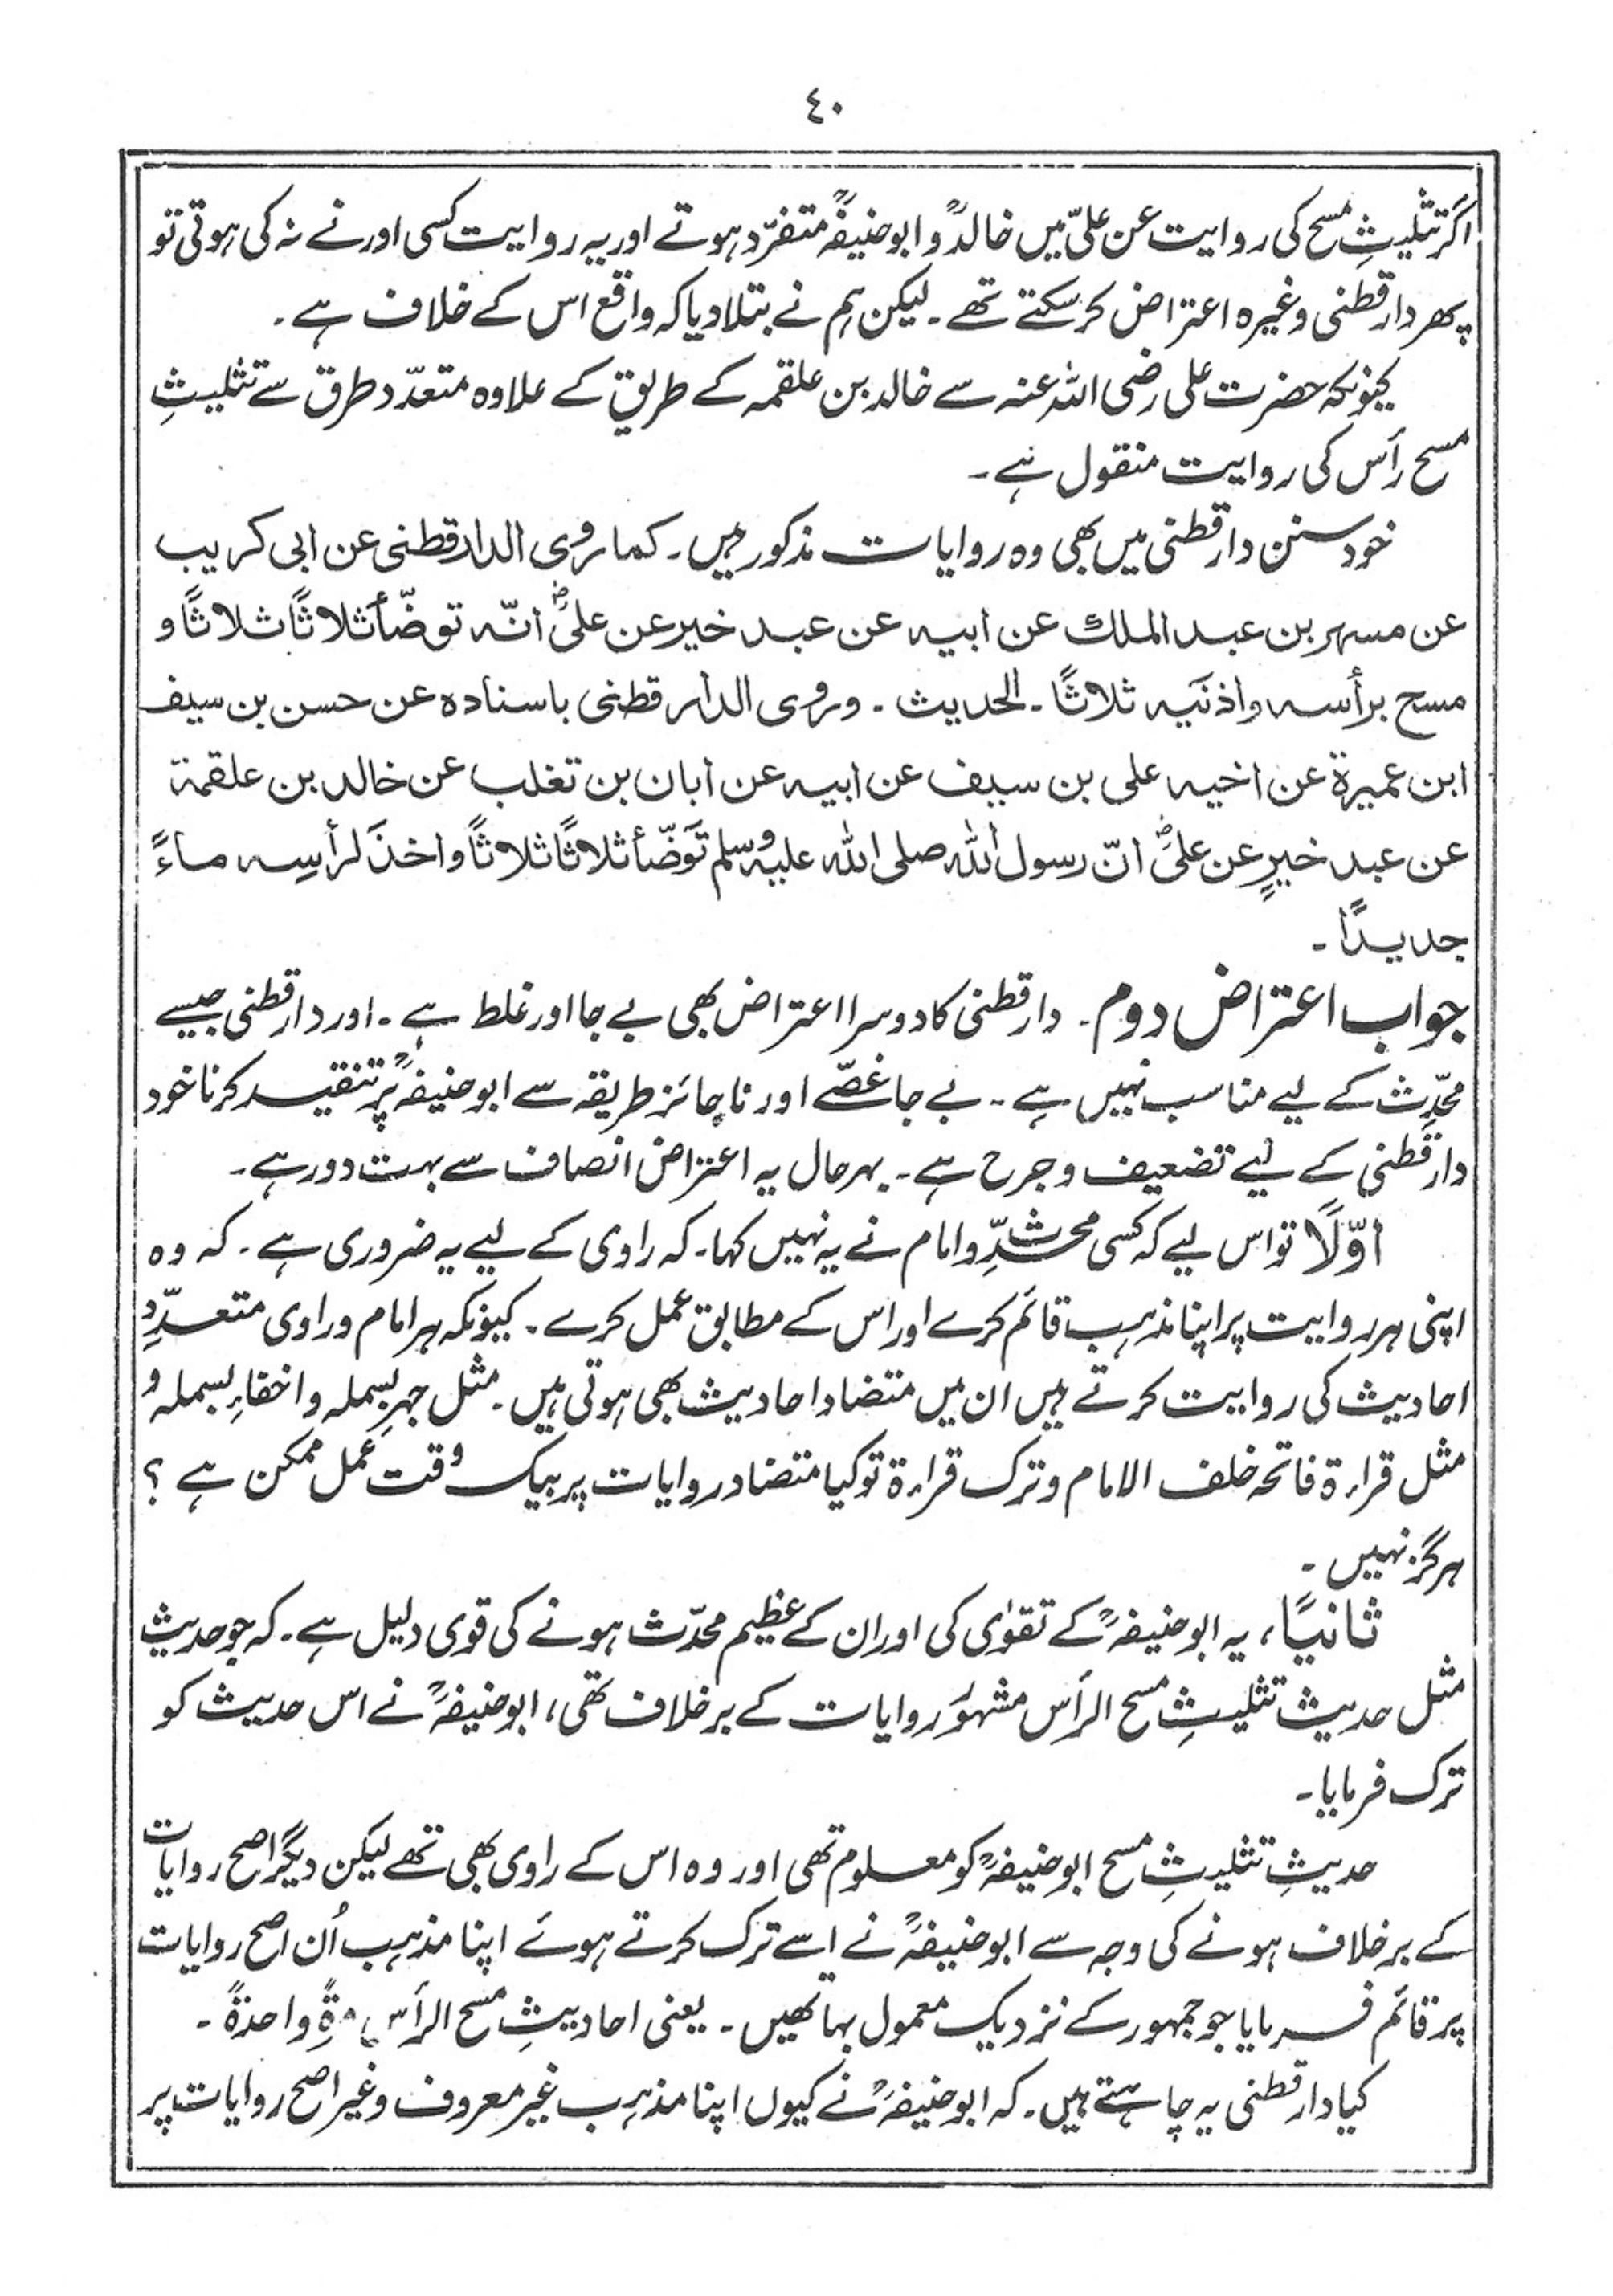 ٤٠
اگر تثلیثِ مسح کی روایت عن علیّ میں خالدؒ و ابوحنیفہؒ متفرّد ہوتے اور یہ روایت کسی اور نے نہ کی ہوتی تو
پھر دارقطنی وغیرہ اعتراض کرسکتے تھے۔ لیکن ہم نے بتلادیا کہ واقع اس کے خلاف ہے۔
کیونکہ حضرت علی رضی اللہ عنہ سے خالد بن علقمہ کے طریق کے علاوہ متعدّد طرق سے تثلیثِ
مسح رأس کی روایت منقول ہے۔
خود سنن دارقطنی میں بھی وہ روایات مذکور ہیں۔ کما روی الدارقطنی عن ابی کریب
عن مسہر بن عبد الملك عن ابیہ عن عبد خیر عن علیؓ انّہ توضّأ ثلاثًا ثلاثًا و
مسح برأسہ واذنَیہ ثلاثًا۔ الحدیث۔ وروی الدارقطنی باسنادہ عن حسن بن سیف
ابن عمیرة عن اخیہ علی بن سیف عن ابیہ عن ابان بن تغلب عن خالد بن علقمة
عن عبد خیرٍ عن علیؓ انّ رسول اللہ صلی اللہ علیہ وسلم تَوضّأ ثلاثًا ثلاثًا واخذَ لرأسِہ ماءً
جدیدًا۔
جواب اعتراض دوم۔ دارقطنی کا دوسرا اعتراض بھی بے جا اور غلط ہے۔ اور دارقطنی جیسے
محدِّث کے لیے مناسب نہیں ہے۔ بے جا غصّے اور ناجائز طریقہ سے ابوحنیفہؒ پر تنقید کرنا خود
دارقطنی کے لیے تضعیف و جرح ہے۔ بہرحال یہ اعتراض انصاف سے بہت دور ہے۔
اوّلًا تو اس لیے کہ کسی محدِّث و امام نے یہ نہیں کہا۔ کہ راوی کے لیے یہ ضروری ہے۔ کہ وہ
اپنی ہر روایت پر اپنا مذہب قائم کرے اور اس کے مطابق عمل کرے۔ کیونکہ ہر امام و راوی متعدِّد
احادیث کی روایت کرتے ہیں ان میں متضاد احادیث بھی ہوتی ہیں۔ مثل جہرِ بسملہ و اخفاءِ بسملہ و
مثل قراءۃ فاتحہ خلف الامام و ترک قراءۃ تو کیا متضاد روایات پر بیک وقت عمل ممکن ہے ؟
ہرگز نہیں۔
ثانیًا، یہ ابوحنیفہؒ کے تقوٰی کی اور ان کے عظیم محدّث ہونے کی قوی دلیل ہے۔ کہ جو حدیث
مثل حدیث تثلیثِ مسح الرأس مشہور روایات کے برخلاف تھی، ابوحنیفہؒ نے اس حدیث کو
ترک فرمایا۔
حدیثِ تثلیثِ مسح ابوحنیفہؒ کو معلوم تھی اور وہ اس کے راوی بھی تھے لیکن دیگر اصح روایات
کے برخلاف ہونے کی وجہ سے ابوحنیفہؒ نے اسے ترک کرتے ہوئے اپنا مذہب اُن اصح روایات
پر قائم فرمایا جو جمہور کے نزدیک معمول بہا تھیں۔ یعنی احادیثِ مسح الرأس مرّۃً واحدۃً۔
کیا دارقطنی یہ چاہتے ہیں۔ کہ ابوحنیفہؒ نے کیوں اپنا مذہب غیر معروف و غیر اصح روایات پر